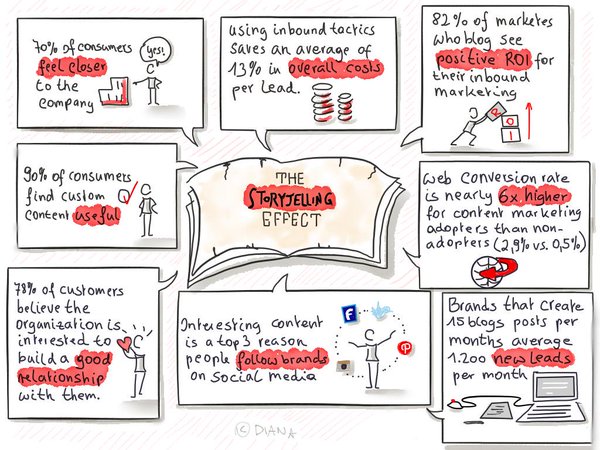 70% of consumers
feel closer
to the
company
yes!
using inbound tactics
saves an average of
13% in overall costs
per lead.
82% of marketes
who blog see
positive ROI for
their inbound
marketing
R
O
I
90% of consumers
find custom
content useful
THE
STORYTELLING
EFFECT
web conversion rate
is nearly 6x higher
for content marketing
adopters than non-
adopters (2,9% vs. 0,5%)
78% of customers
believe the
organization is
interested to
build a good
relationship
with them.
Interesting content
is a top 3 reason
people follow brands
on social media
Brands that create
15 blogs posts per
months average
1.200 new leads
per month
© DIANA